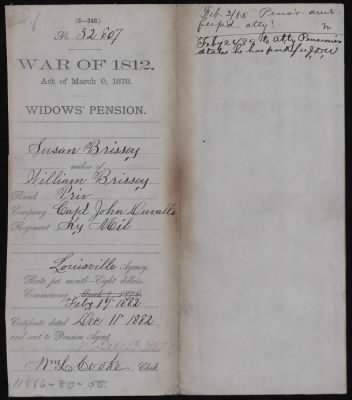 (3—246.)
No. 32,807
WAR OF 1812.
Act of March 9, 1878.
WIDOWS' PENSION.
Susan Brissey
widow of
William Brissey
Rank Priv
Company Capt John Duvalls
Regiment Ky Mil
Louisville Agency.
Rate per month—Eight dollars,
Commencing March 9, 1878
Feby 19 1882
Certificate dated Dec 11 1882
and sent to Pension Agent
Wm L Cooke Clerk.
11886-80-55.
Feb. 3/85.
atty.
Atty
states he has paid fee